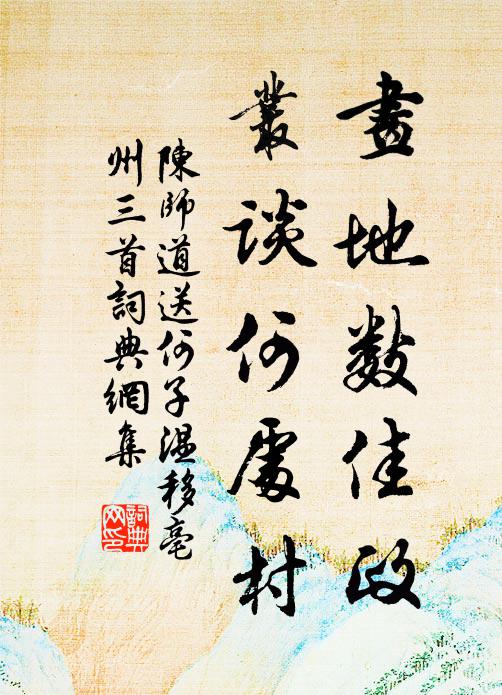 畫地數佳政
叢談何處村
陳師道送何子溫移亳
州三首詞典網集
詞典
网印